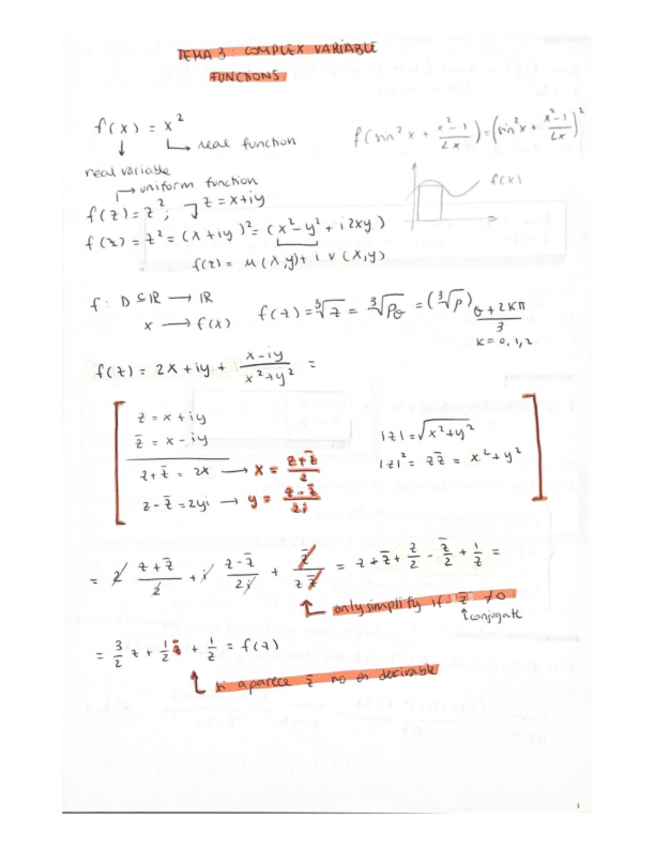 TEMA 3: COMPLEX VARIABLE
FUNCTIONS
f(x) = x²
↳ real function
f(sin²x + (x²-1)/2x) = (sin²x + (x²-1)/2x)²
real variable
f(x)
↳ uniform function
f(z) = z²; z = x+iy
f(z) = z² = (x+iy)² = (x²-y² + i2xy)
f(z) = u(x,y) + i v(x,y)
f: D⊆ℝ → ℝ
x → f(x)
f(z) = ∛z = ∛ρ_θ = (∛ρ)_(θ+2kπ)/3
k = 0,1,2
f(z) = 2x + iy + (x-iy)/(x²+y²) =
z = x+iy
z̄ = x-iy
|z| = √(x²+y²)
|z|² = z z̄ = x²+y²
z+z̄ = 2x → x = (z+z̄)/2
z-z̄ = 2yi → y = (z-z̄)/2i
= 2 (z+z̄)/2 + i (z-z̄)/2i + z̄/(z z̄) = z+z̄+z/2 - z̄/2 + 1/z =
only simplify if z̄ ≠0
↑conjugate
= 3/2 z + 1/2 z̄ + 1/z = f(z)
si aparece z̄ no es derivable
1